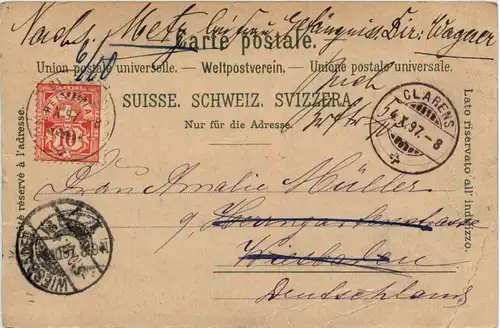 Nachs. Metz bei Frau Gefängniss Dir. Wagner
Carte postale.
Union postale universelle. — Weltpostverein. — Unione postale universale.
SUISSE. SCHWEIZ. SVIZZERA.
Nur für die Adresse.
Côté réservé à l'adresse.
Lato riservato all' indirizzo.
HELVETIA
10
CLARENS
4.X.97.-8
Frau Amalie Müller
9 Herrngartenstrasse
Wiesbaden
Deutschland
WIESBADEN